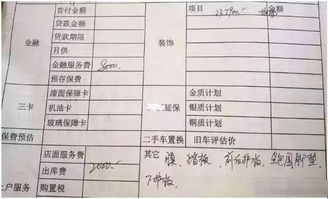 首付金额
项目 237900 金额
贷款金额
金融 贷款期限 装饰
月供
金融服务费 8000
预存保费
漆面保障卡 金质计划
三卡 机油卡 延保 银质计划
玻璃保障卡 铜质计划
保费预估 二手车置换 旧车评估价
店面服务费 其它 膜、踏板、前后护板、全包围脚垫
出库费 2000 下护板
户服务 购置税